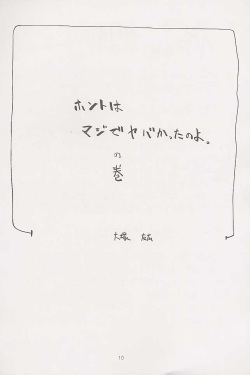 ホントは
マジでヤバかったのよ。
の
巻
大塚
10